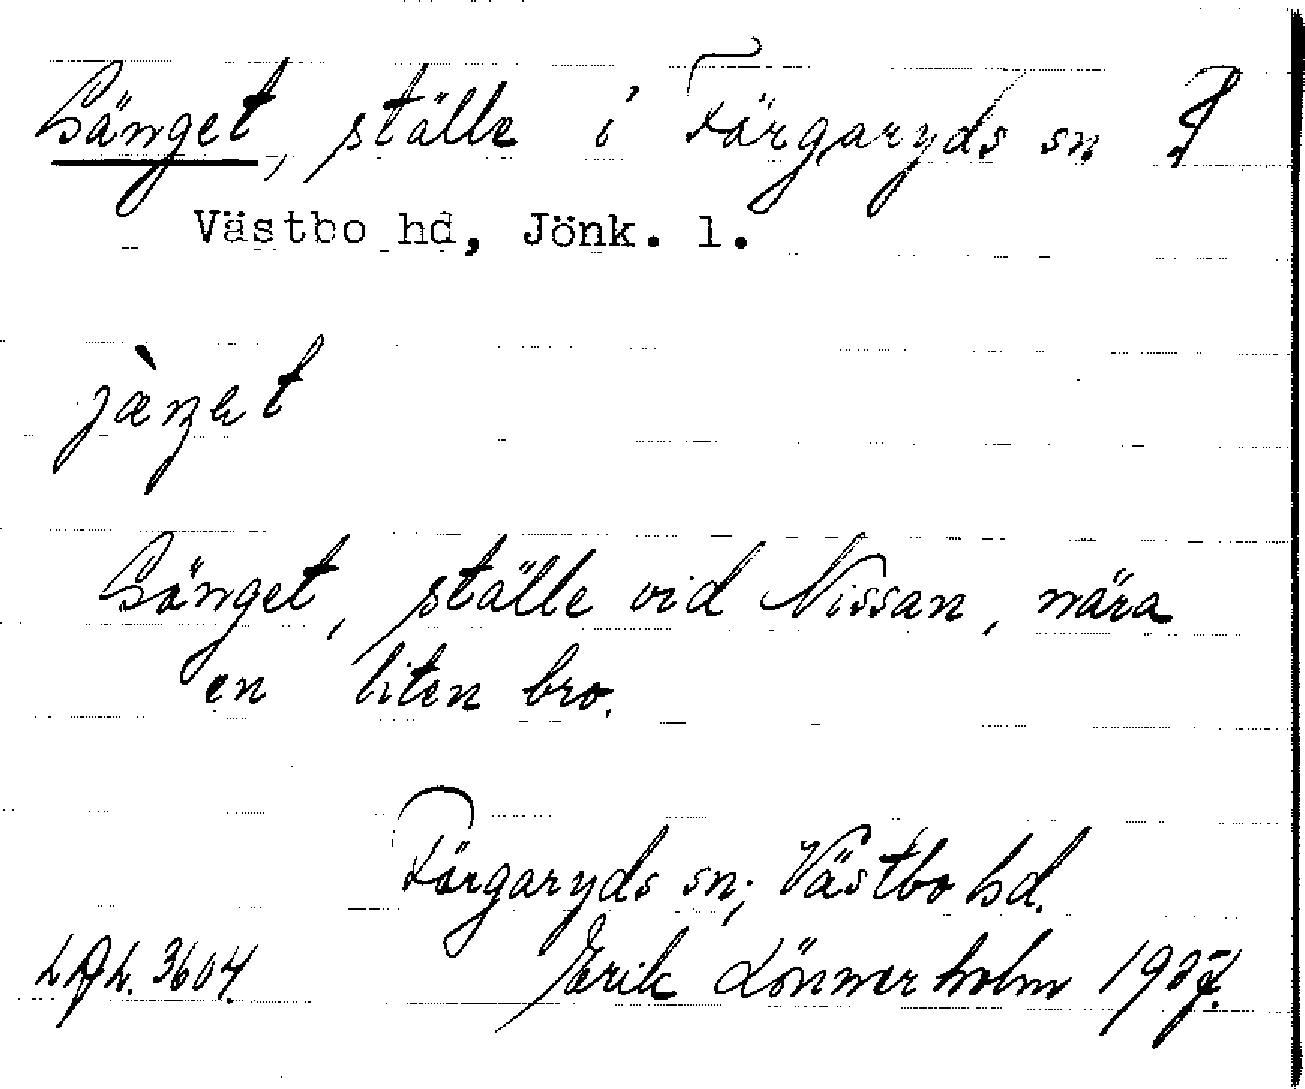 Gänget, ställe i Färgaryds sn
Västbo hd, Jönk. l.
jæ̀ŋet
Gänget, ställe vid Nissan, nära
en liten bro.
Färgaryds sn; Västbo hd.
Erik Lönnerholm 1937.
3604.